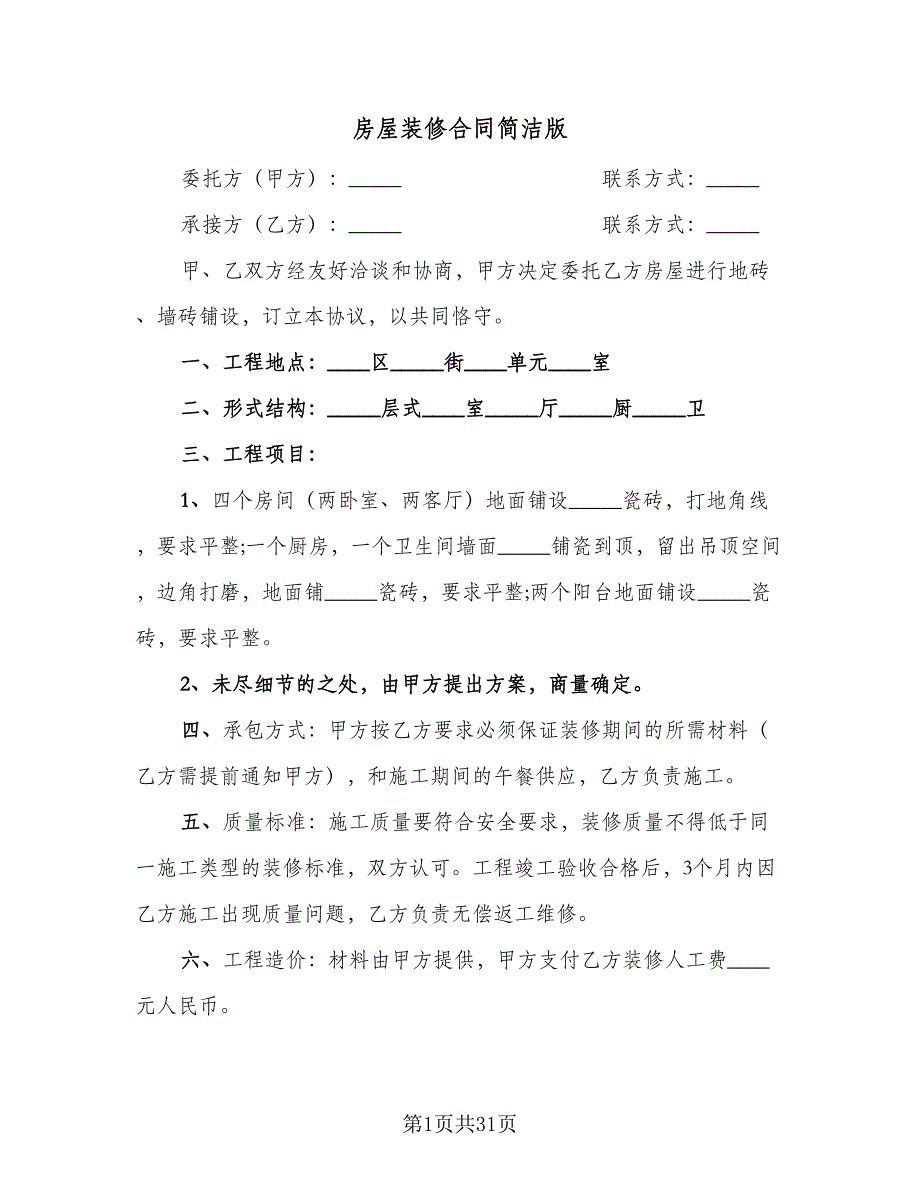 房屋装修合同简洁版
委托方（甲方）：_____ 联系方式：_____
承接方（乙方）：_____ 联系方式：_____
甲、乙双方经友好洽谈和协商，甲方决定委托乙方房屋进行地砖
、墙砖铺设，订立本协议，以共同恪守。
一、工程地点：____区_____街____单元____室
二、形式结构：_____层式____室_____厅_____厨_____卫
三、工程项目：
1、四个房间（两卧室、两客厅）地面铺设_____瓷砖，打地角线
，要求平整;一个厨房，一个卫生间墙面_____铺瓷到顶，留出吊顶空间
，边角打磨，地面铺_____瓷砖，要求平整;两个阳台地面铺设_____瓷
砖，要求平整。
2、未尽细节的之处，由甲方提出方案，商量确定。
四、承包方式：甲方按乙方要求必须保证装修期间的所需材料（
乙方需提前通知甲方），和施工期间的午餐供应，乙方负责施工。
五、质量标准：施工质量要符合安全要求，装修质量不得低于同
一施工类型的装修标准，双方认可。工程竣工验收合格后，3个月内因
乙方施工出现质量问题，乙方负责无偿返工维修。
六、工程造价：材料由甲方提供，甲方支付乙方装修人工费____
元人民币。
第1页共31页